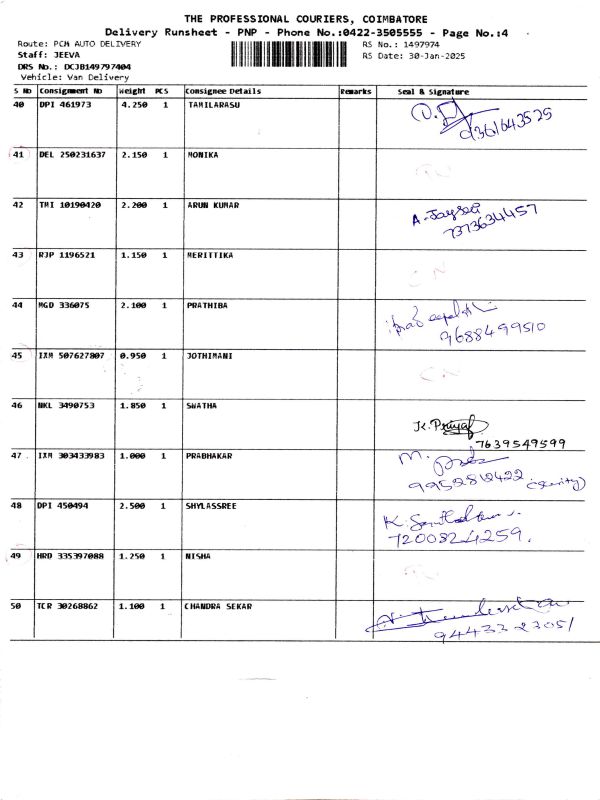 THE PROFESSIONAL COURIERS, COIMBATORE
Delivery Runsheet - PNP - Phone No.:0422-3505555 - Page No.:4
Route: PCM AUTO DELIVERY RS No.: 1497974
Staff: JEEVA RS Date: 30-Jan-2025
DRS No.: DCJB149797404
Vehicle: Van Delivery
S No Consignment No Weight PCS Consignee Details Remarks Seal & Signature
40 DPI 461973 4.250 1 TAMILARASU
9361643525
41 DEL 250231637 2.150 1 MONIKA
42 TMI 10190420 2.200 1 ARUN KUMAR
7373634457
43 RJP 1196521 1.150 1 MERITTIKA
44 MGD 336075 2.100 1 PRATHIBA
9688499510
45 IXM 507627807 0.950 1 JOTHIMANI
CN
46 NKL 3490753 1.850 1 SWATHA
K. Priya
7639549599
47 IXM 303433983 1.000 1 PRABHAKAR
M.
9952812422
48 DPI 450494 2.500 1 SHYLASSREE
7200824259.
49 HRD 335397088 1.250 1 NISHA
50 TCR 30268862 1.100 1 CHANDRA SEKAR
9443322305/